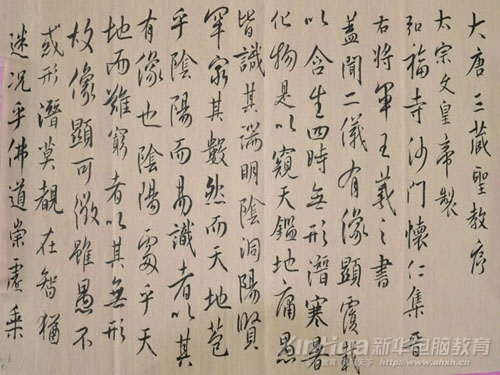 大唐三藏聖教序
太宗文皇帝製
弘福寺沙門懷仁集晉
右將軍王羲之書
蓋聞二儀有像顯覆載
以含生四時無形潛寒暑
化物是以窺天鑑地庸愚
皆識其端明陰洞陽賢
罕窮其數然而天地苞
乎陰陽而易識者以其
有像也陰陽處乎天
地而難窮者以其無形
故像顯可徵雖愚不
或形潛莫覩在智猶
迷況乎佛道崇虛乘
XinHua 新华电脑教育
www.ahxh.cn